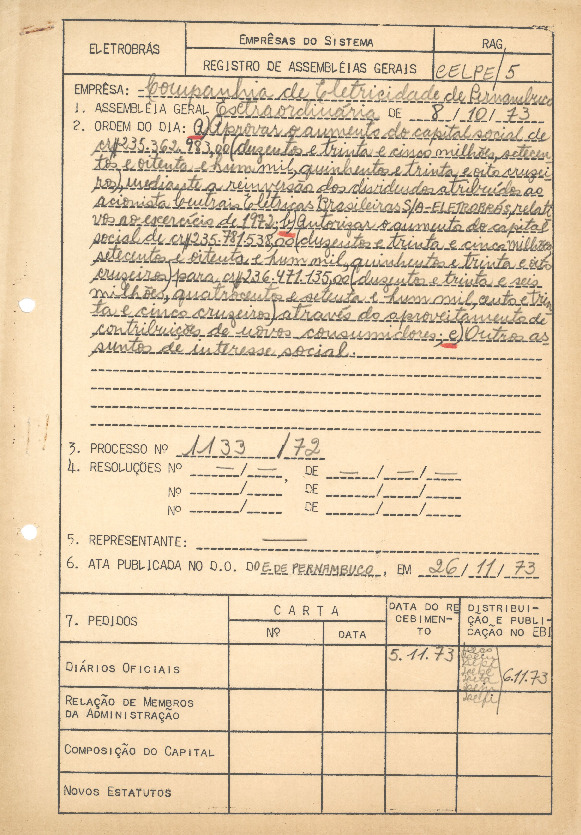 ELETROBRÁS
EMPRÊSAS DO SISTEMA
REGISTRO DE ASSEMBLÉIAS GERAIS
RAG
CELPE/5
EMPRÊSA: Companhia de Eletricidade de Pernambuco
1. ASSEMBLÉIA GERAL Extraordinária DE 8/10/73
2. ORDEM DO DIA: a) Aprovar o aumento do capital social de
cr$235.362.983,00 (duzentos e trinta e cinco milhões, setecen
tos e oitenta e hum mil, quinhentos e trinta e oito cruzei
ros), mediante a reinversão dos dividendos atribuídos ao
acionista Centrais Elétricas Brasileiras S/A-ELETROBRÁS, relati
vos ao exercício de 1972; b) Autorizar o aumento do capital
social de cr$235.781.538,00 (duzentos e trinta e cinco milhões,
setecentos e oitenta e hum mil, quinhentos e trinta e oito
cruzeiros) para cr$236.471.135,00 (duzentos e trinta e seis
milhões, quatrocentos e setenta e hum mil, cento e trin
ta e cinco cruzeiros) através do aproveitamento de
contribuições de novos consumidores; c) Outros as
suntos de interesse social.
3. PROCESSO Nº 1133/72
4. RESOLUÇÕES Nº —/—, DE —/—/—
Nº / DE / /
Nº / DE / /
5. REPRESENTANTE: —
6. ATA PUBLICADA NO D.O. DO E. DE PERNAMBUCO, EM 26/11/73
7. PEDIDOS
CARTA
Nº
DATA
DATA DO RE
CEBIMEN-
TO
DISTRIBUI-
ÇÃO E PUBLI-
CAÇÃO NO EBI
DIÁRIOS OFICIAIS
5.11.73
6.11.73
RELAÇÃO DE MEMBROS
DA ADMINISTRAÇÃO
COMPOSIÇÃO DO CAPITAL
NOVOS ESTATUTOS